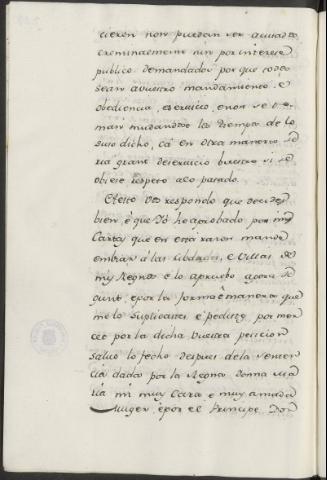 cieren non puedan ser acusados
creminalmente nin por interese
publico demandados por que todo
sean a vuestro mandamiento, e
obediencia, e servicio, e non se
mudando los tiempos de lo
suso dicho, ca en otra manera se
ria grant deservicio buestro si se
obiese respeto a lo pasado.
A esto vos respondo que decides
bien, e que Yo he aprobado por mis
Cartas que en esta raron mandé
embiar á las Cibdades, e Villas de
mis Regnos e lo apruebo agora se
gunt, e por la forma e manera que
me lo suplicastes é pedistes por mer
ced por la dicha buestra peticion
salvo lo fecho despues de la senten
cia dada por la Reyna donna Ma
ria mi muy cara e muy amada
Muger, e por el Principe Don